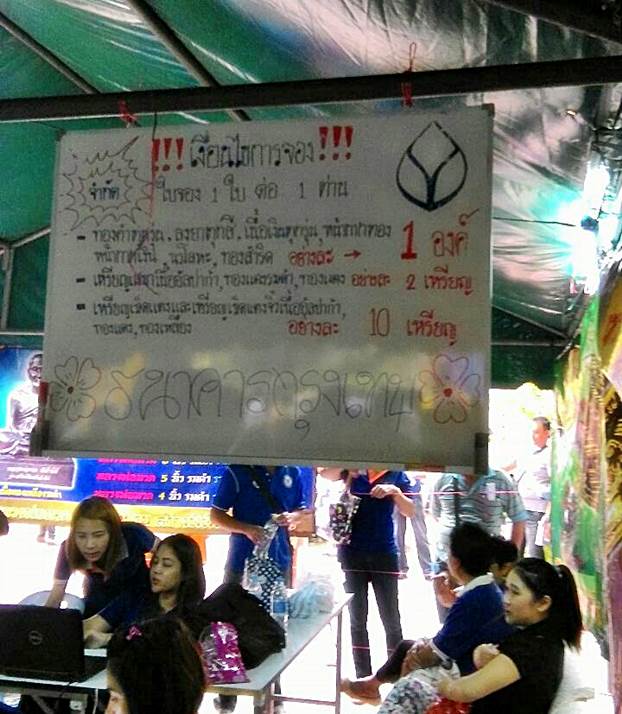 !!! เงื่อนไขการจอง !!!
จำกัด ใบจอง 1 ใบ ต่อ 1 ท่าน
- ทองคำทุกชนิด, ลงยาทุกสี, เนื้อเงินทุกรุ่น, หน้ากากทอง
หน้ากากเงิน, นวโลหะ, ทองสำริด อย่างละ → 1 องค์
- เหรียญเสมาเนื้ออัลปาก้า, ทองแดงรมดำ, ทองแดง อย่างละ 2 เหรียญ
- เหรียญเจ็ดแตะและเหรียญเจ็ดแตะจิ๋วเนื้ออัลปาก้า,
ทองแดง, ทองเหลือง อย่างละ 10 เหรียญ
ธนาคารกรุงเทพ
5 นิ้ว รมดำ
4 นิ้ว รมดำ
DELL